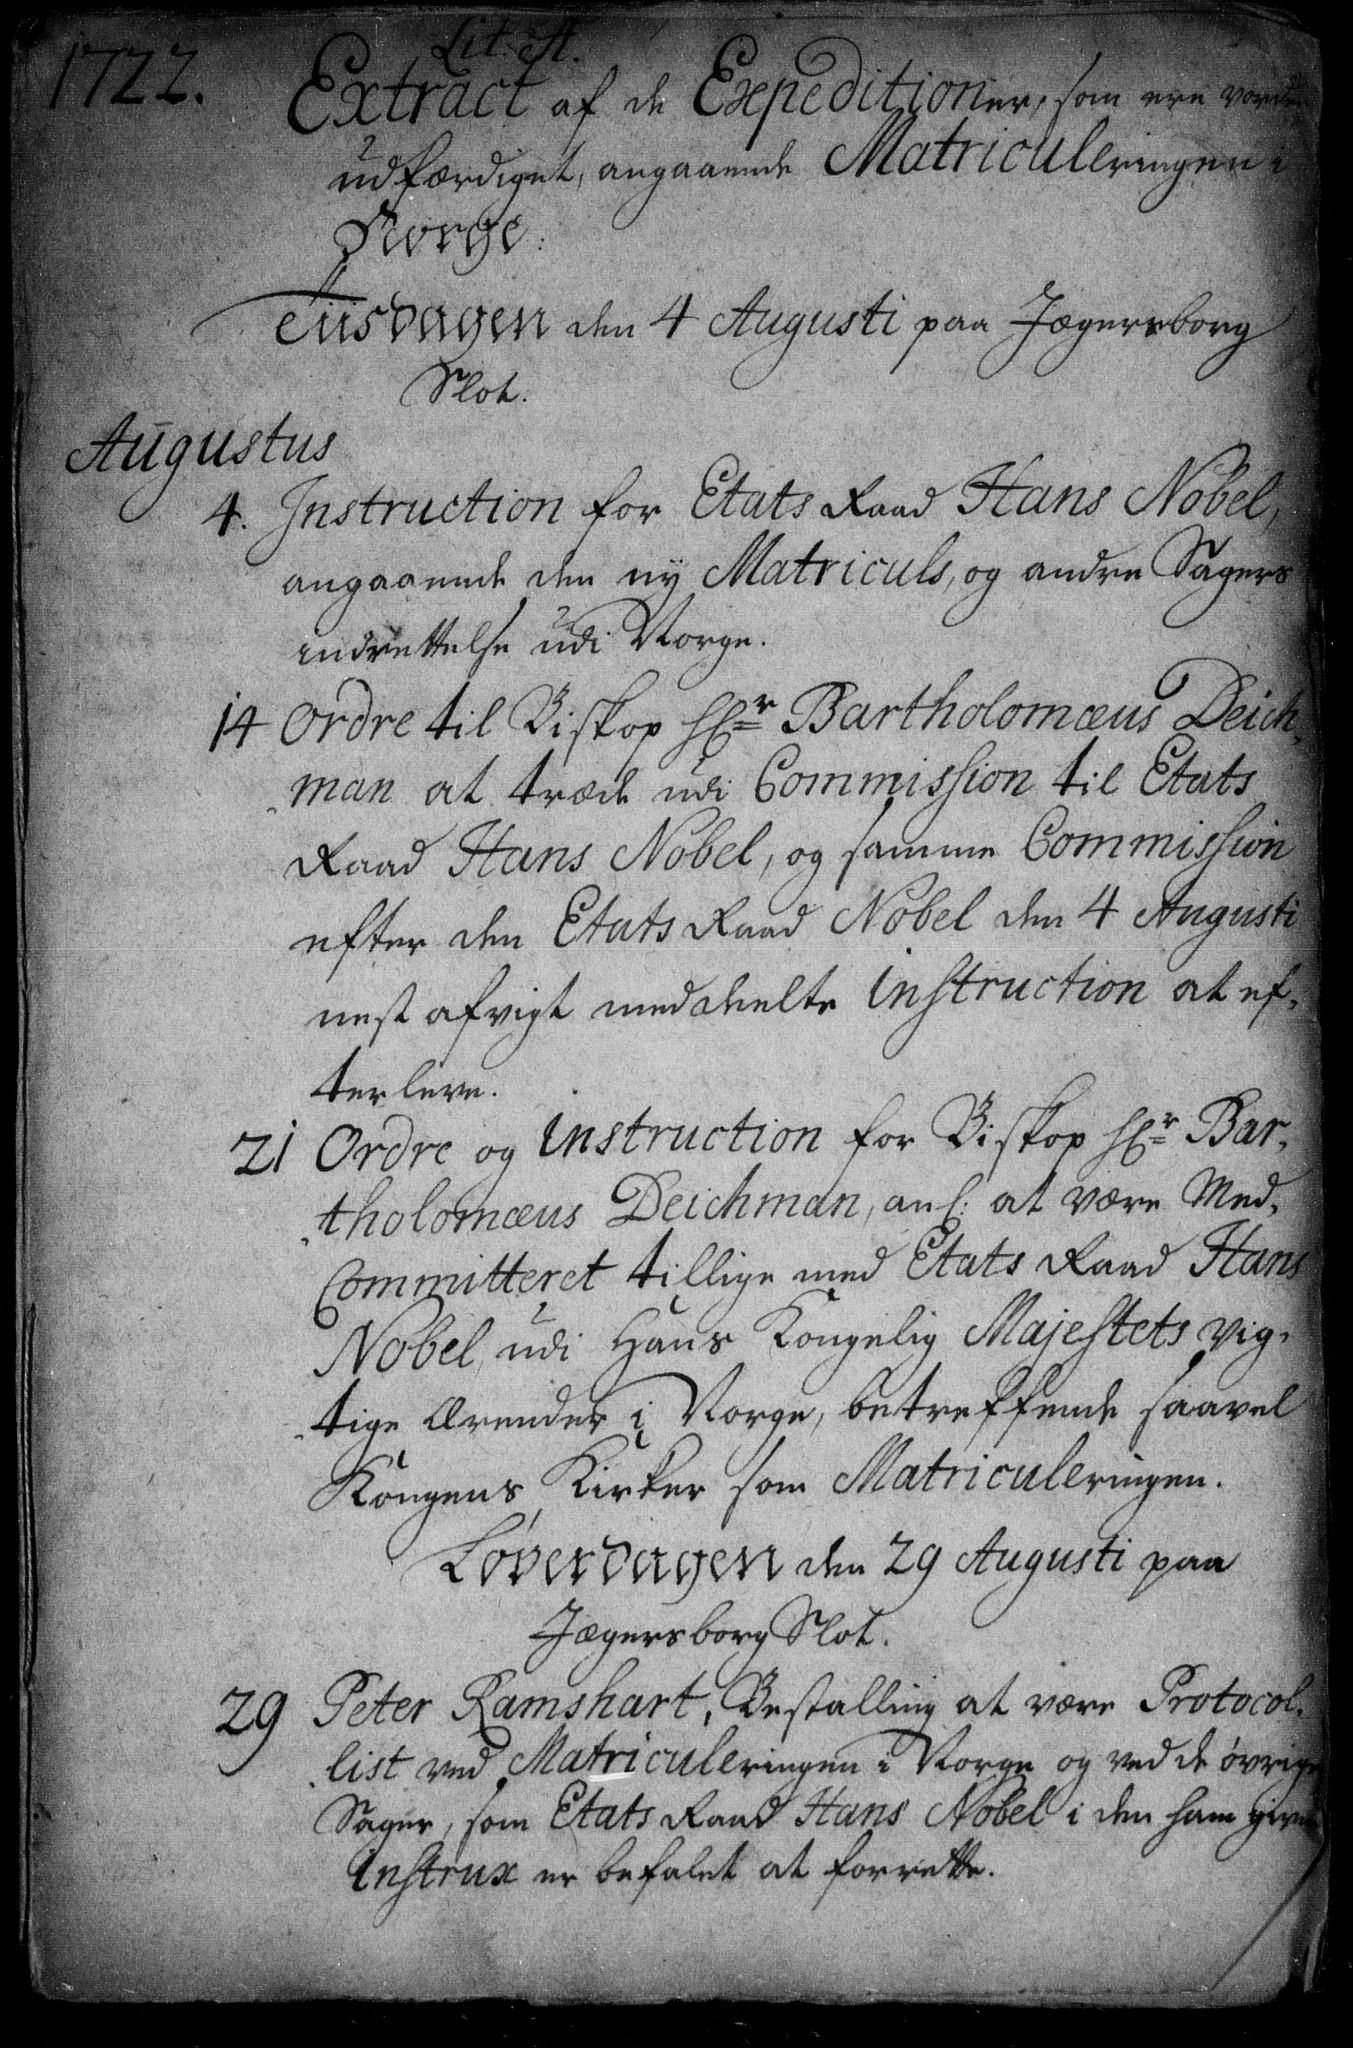 Lit: A.
1722. Extract af de Expeditioner, som ere vorden
udfærdiget, angaaende Matriculeringen i
Norge:
Tiisdagen den 4 Augusti paa Jægersborg
Slot.
Augustus
4. Instruction for Etats Raad Hans Nobel,
angaaende den ny Matriculs, og andre Sagers
indrettelse udi Norge.
14 Ordre til Biskop Hr Bartholomæus Deich-
man at træde udi Commission til Etats
Raad Hans Nobel, og samme Commission
efter den Etats Raad Nobel den 4 Augusti
nest afvigt meddeelte instruction at ef-
terleve.
21 Ordre og instruction for Biskop Hr Bar-
tholomæus Deichman, anl: at være Med-
Committeret tillige med Etats Raad Hans
Nobel, udi Hans Kongelig Majestets vig-
tige Ærender i Norge, betreffende saavel
Kongens Kirker som Matriculeringen.
Løverdagen den 29 Augusti paa
Jægersborg Slot.
29 Peter Ramshart, Bestalling at være Protocol-
list ved Matriculeringen i Norge og ved de øvrige
Sager, som Etats Raad Hans Nobel i den ham givne
instrux er befalet at forrette.